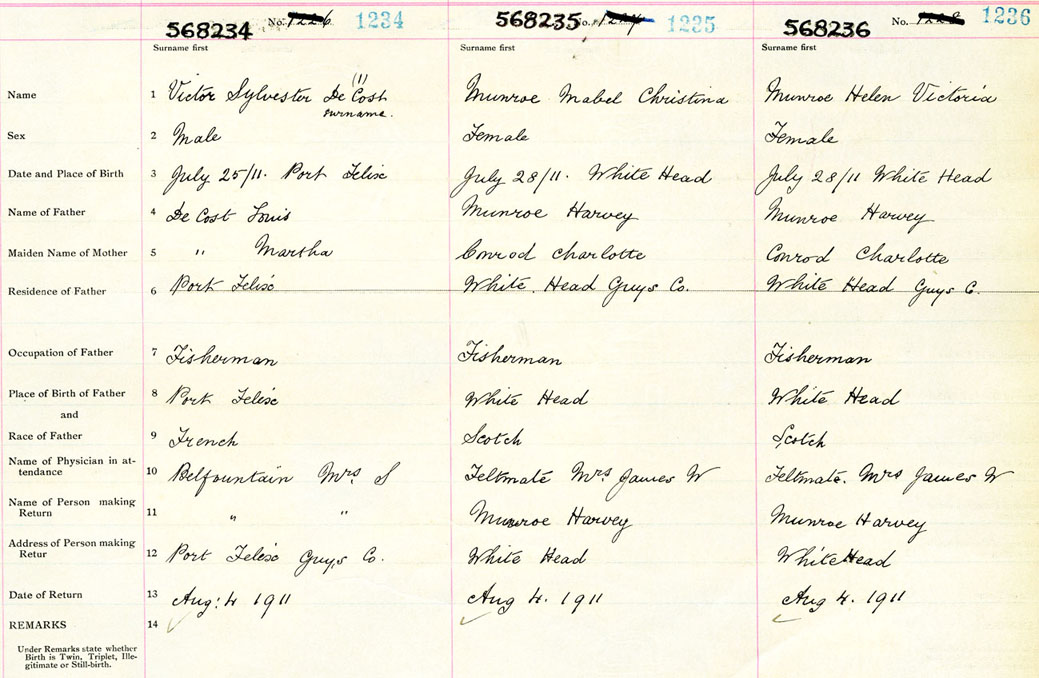 568234 No. 1226 1234 568235 No. 1227 1235 568236 No. 1228 1236
Surname first Surname first Surname first
Name 1 Victor Sylvester De Cost (1) Munroe Mabel Christina Munroe Helen Victoria
surname.
Sex 2 Male Female Female
Date and Place of Birth 3 July 25/11. Port Felix July 28/11. White Head July 28/11 White Head
Name of Father 4 De Cost Louis Munroe Harvey Munroe Harvey
Maiden Name of Mother 5 " Martha Conrod Charlotte Conrod Charlotte
Residence of Father 6 Port Felix White Head Guys Co. White Head Guys C.
Occupation of Father 7 Fisherman Fisherman Fisherman
Place of Birth of Father 8 Port Felix White Head White Head
and
Race of Father 9 French Scotch Scotch
Name of Physician in at-
tendance 10 Belfountain Mrs S Feltmate Mrs James W Feltmate. Mrs James W
Name of Person making
Return 11 " " Munroe Harvey Munroe Harvey
Address of Person making
Retur 12 Port Felix Guys Co. White Head White Head
Date of Return 13 Aug: 4 1911 Aug 4. 1911 Aug 4. 1911
REMARKS 14
Under Remarks state whether
Birth is Twin, Triplet, Ille-
gitimate or Still-birth.